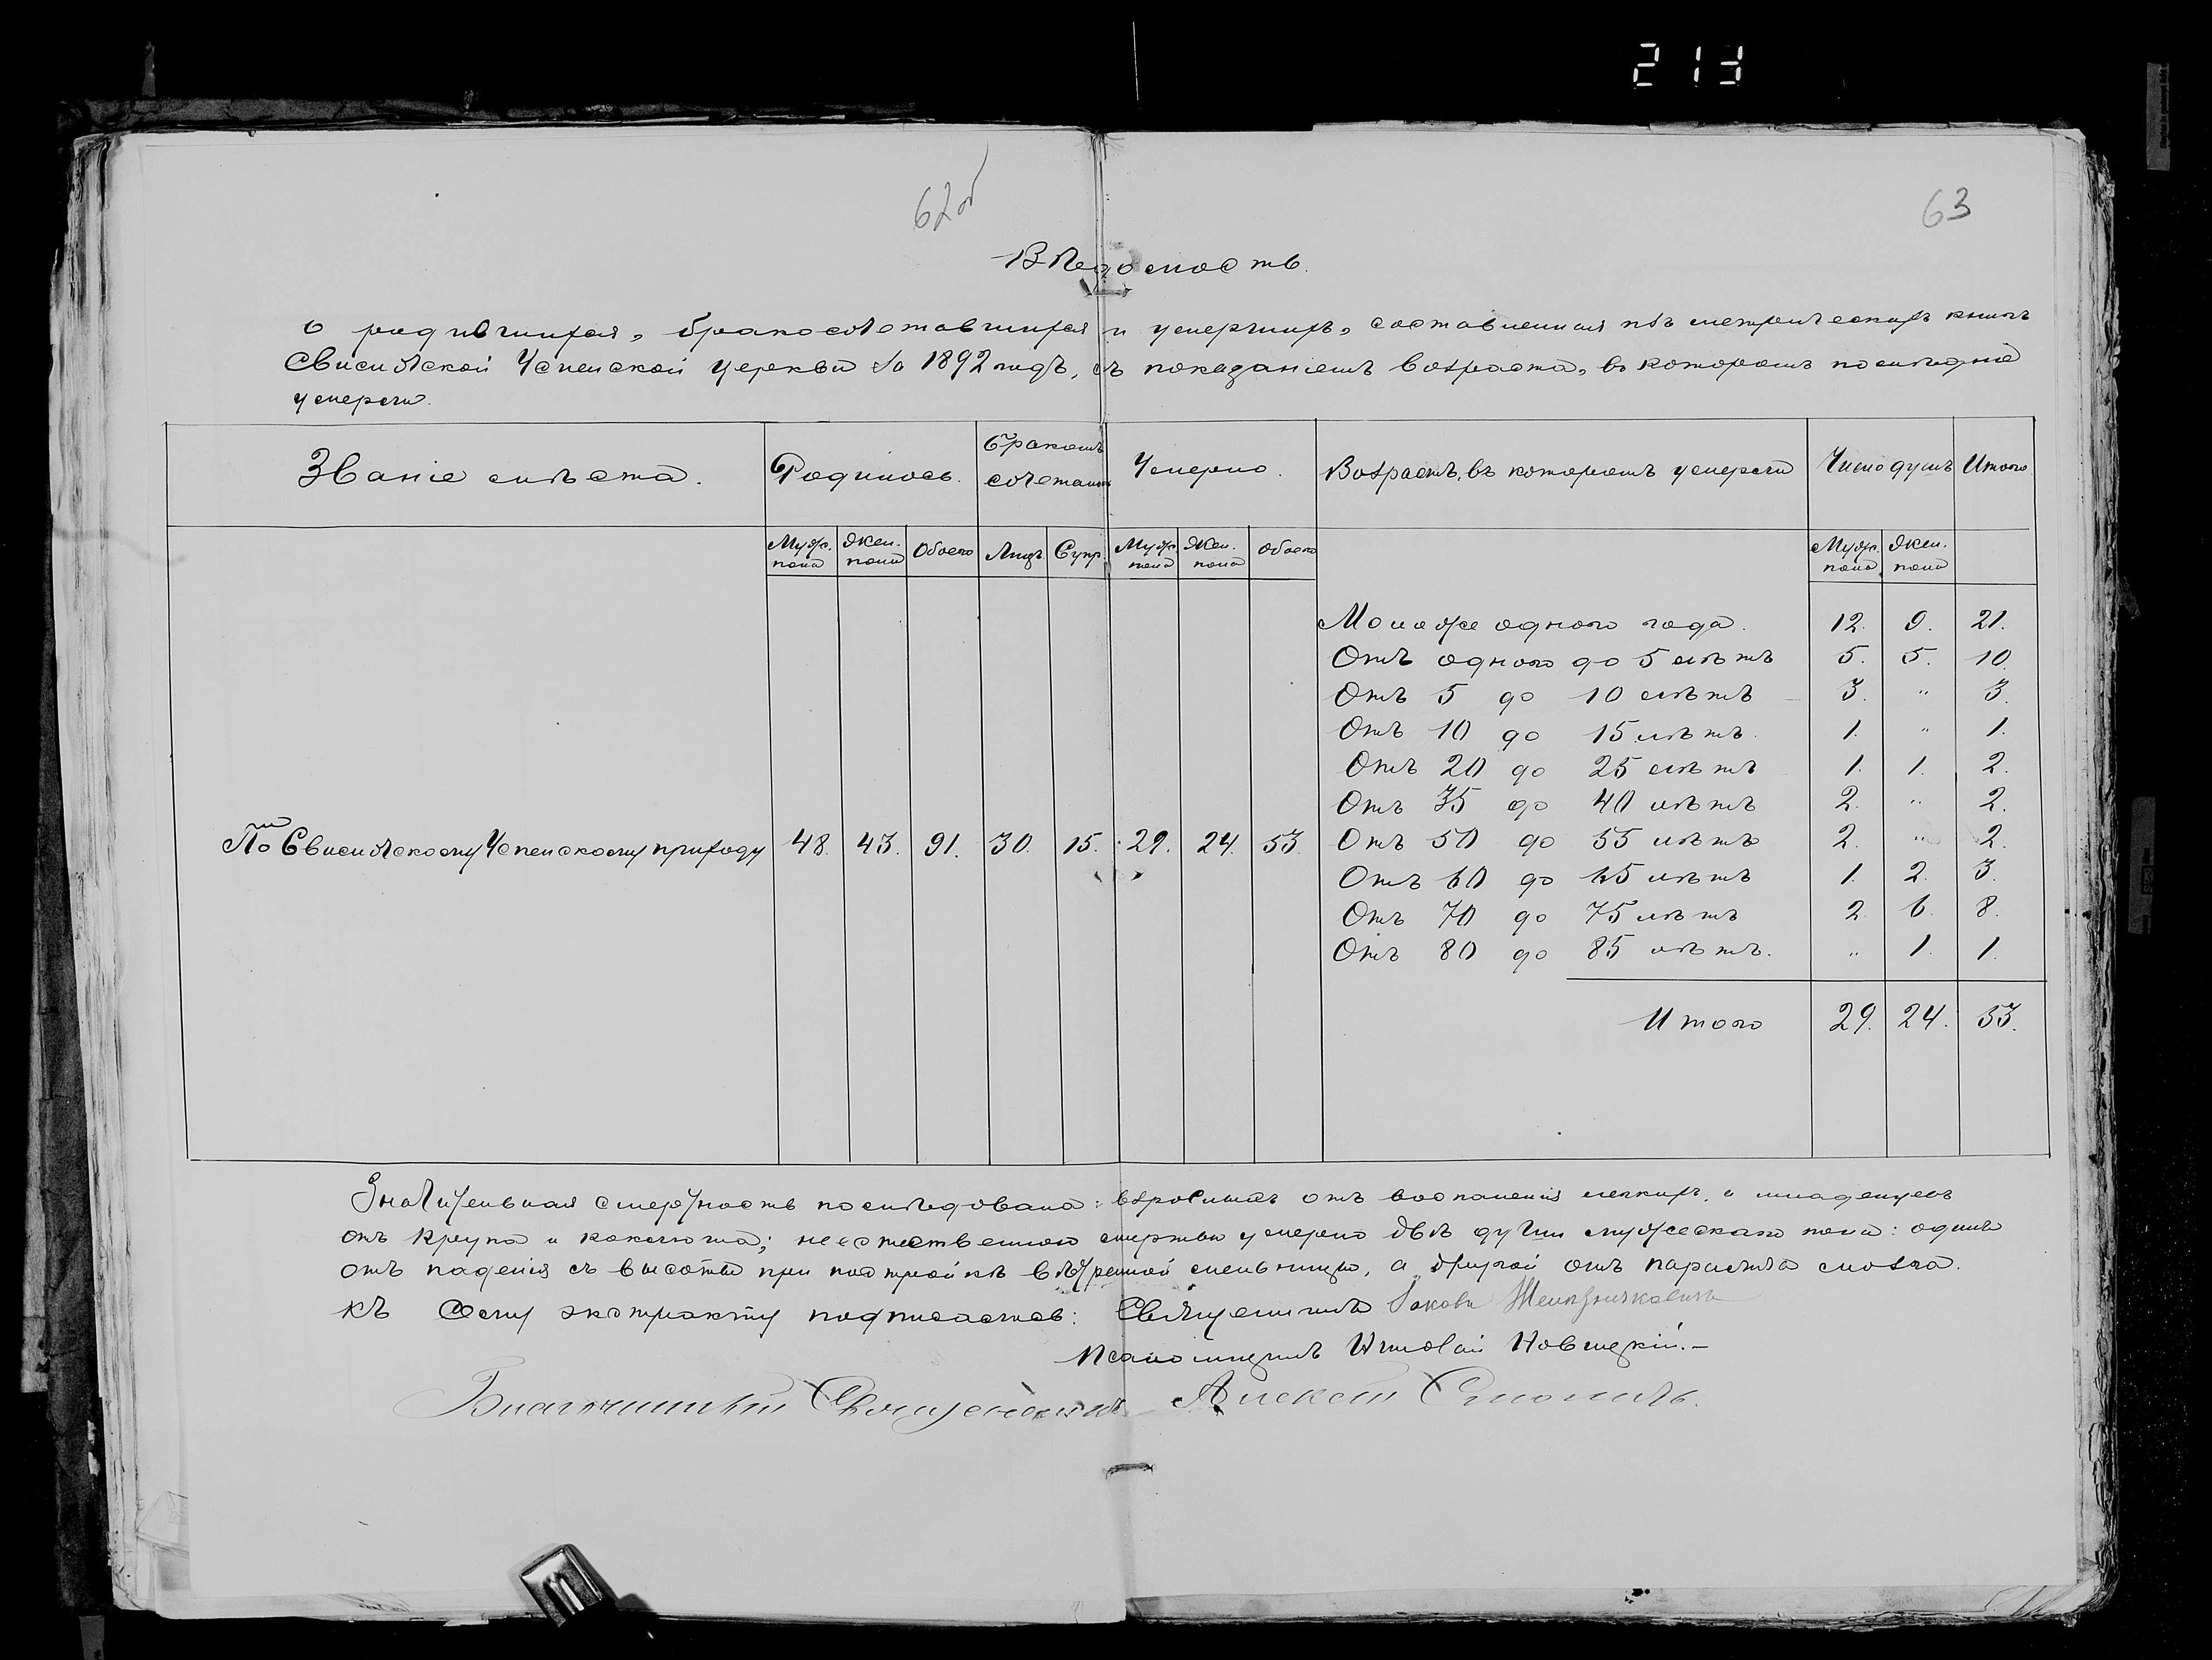 213
62об
63
Вѣдомость
о родившихся, бракосочетавшихся и умершихъ, составленная изъ метрическихъ книгъ
Свислочской Успенской церкви за 1892 годъ, съ показаніемъ возраста, въ которомъ послѣдніе
умерли.
Званіе мѣста. Родилось. Бракомъ сочетались Умерло. Возрастъ, въ которомъ умерли Число душъ Итого
Муж. пола Жен. пола Обоего Лицъ Супр. Муж. пола Жен. пола Обоего Муж. пола Жен. пола
Моложе одного года. 12. 9. 21.
Отъ одного до 5 лѣтъ 5. 5. 10.
Отъ 5 до 10 лѣтъ 3. " 3.
Отъ 10 до 15 лѣтъ. 1. " 1.
Отъ 20 до 25 лѣтъ 1. 1. 2.
Отъ 35 до 40 лѣтъ 2. " 2.
По Свислочскому Успенскому приходу 48. 43. 91. 30. 15. 29. 24. 53. Отъ 50 до 55 лѣтъ 2. " 2.
Отъ 60 до 65 лѣтъ 1. 2. 3.
Отъ 70 до 75 лѣтъ 2. 6. 8.
Отъ 80 до 85 лѣтъ. " 1. 1.
Итого 29. 24. 53.
Значительная смертность послѣдовала: взрослыхъ отъ воспаленія легкихъ, а младенцевъ
отъ крупа и коклюша; неестественною смертью умерло двѣ души мужескаго пола: одинъ
отъ паденія съ высоты при постройкѣ вѣтреной мельницы, а другой отъ паралича мозга.
Къ сему экстракту подписались: Священникъ Іаковъ
Псаломщикъ Николай Новицкій.—
Благочинный Священникъ Алексей